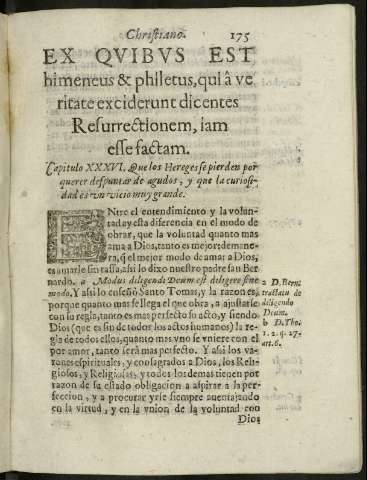 Christiano. 175
EX QVIBVS EST
himeneus & philetus, qui à ve
ritate exciderunt dicentes
Resurrectionem, iam
esse factam.
Capitulo XXXVI. Que los Hereges se pierden por
querer despuntar de agudos, y que la curiosi-
dad es vn vicio muy grande.
ENtre el entendimiento y la volun-
tad ay esta diferencia en el modo de
obrar, que la voluntad quanto mas
ama a Dios, tanto es mejor: de mane-
ra, q̃ el mejor modo de amar a Dios,
es amarle sin tassa, assi lo dixo nuestro padre san Ber
nardo. a Modus diligendi Deum est deligere sine
modo. Y assi lo enseñò Santo Tomas, y la razon es,
porque quanto mas se llega el que obra, a ajustarse
con su regla, tanto es mas perfecto su acto, y siendo
Dios (que es fin de todos los actos humanos) la re-
gla de todos ellos, quanto mas vno se vniere con el
por amor, tanto serà mas perfecto. Y assi los va-
rones espirituales, y consagrados a Dios, los Reli-
giosos, y Religiosas, y todos los demas tienen por
razon de su estado obligacion a aspirar a la per-
feccion, y a procurar yrse siempre auentajando
en la virtud, y en la vnion de la voluntad con
Dios
a D. Bern.
tractatu de
diligendo
Deum.
b D. Tho.
1. 2. q. 27.
art. 6.